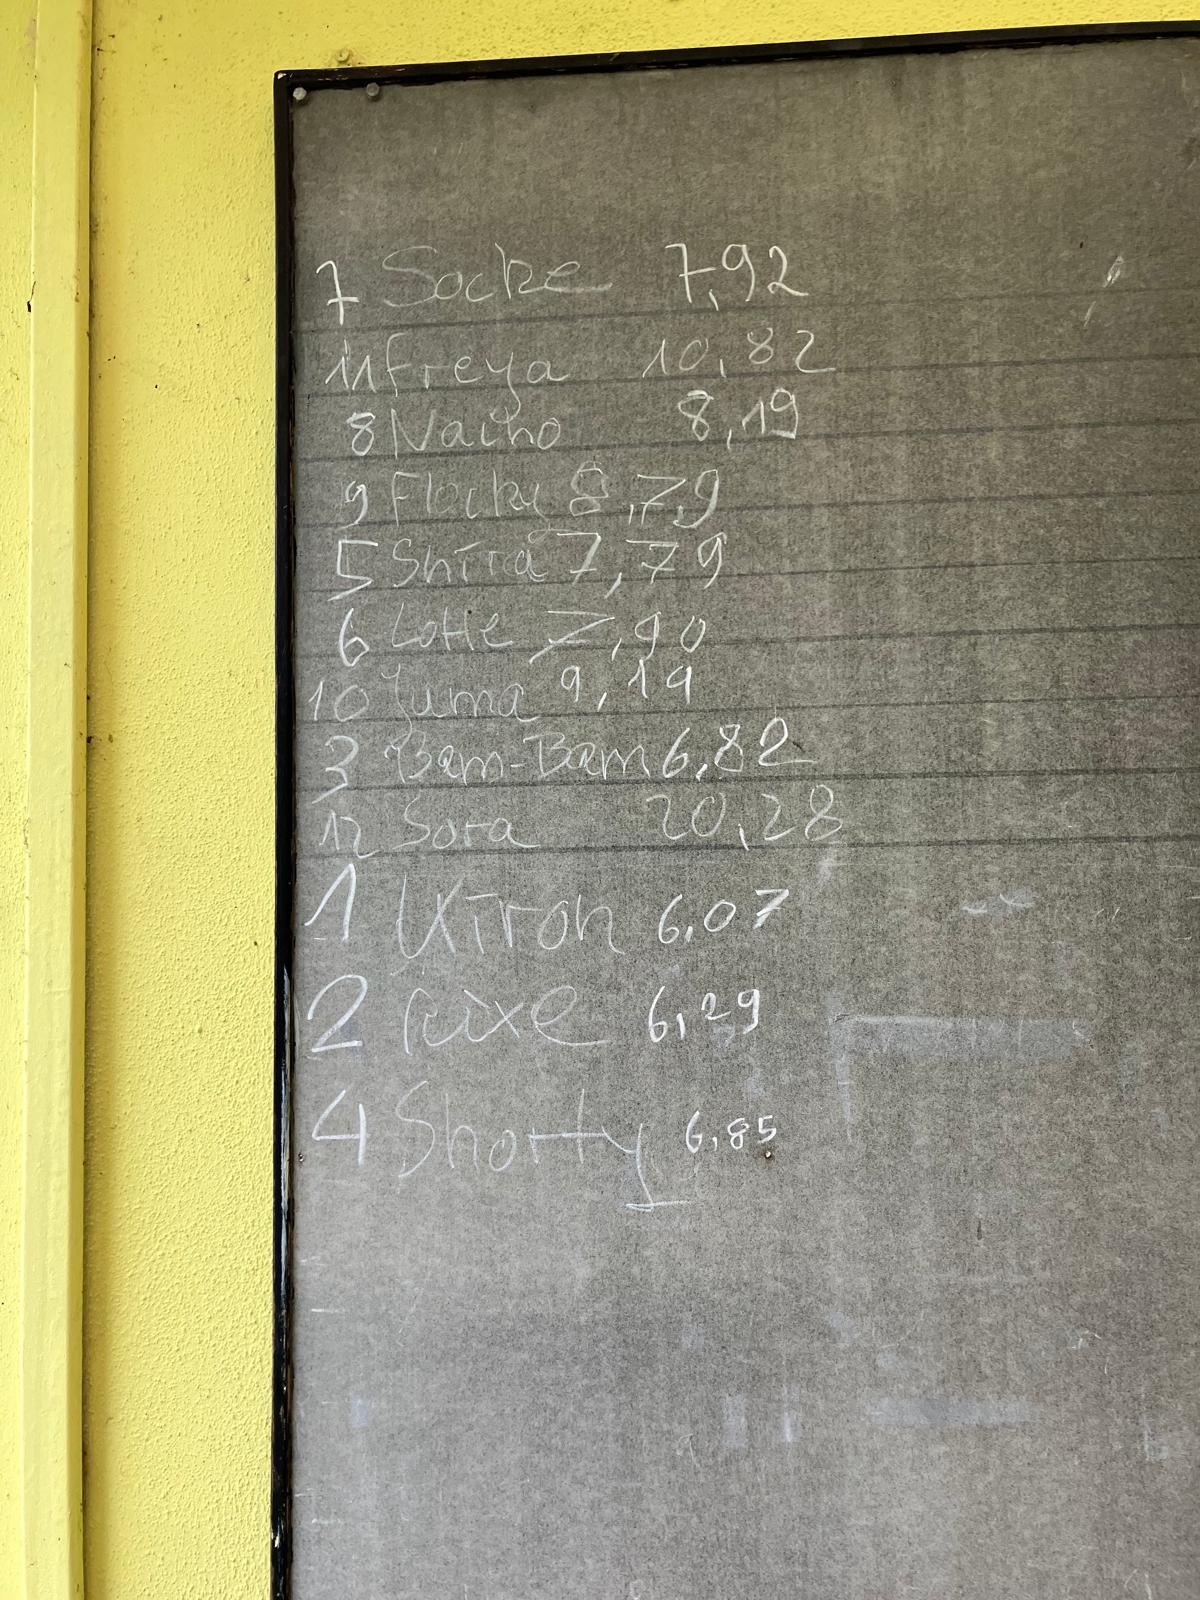 7 Socke 7,92
11 Freya 10,82
8 Nacho 8,19
9 Flocky 8,79
5 Shira 7,79
6 Lotte 7,90
10 Yuma 9,19
3 Bam-Bam 6,82
12 Sora 20,28
1 6,07
2 6,29
4 Shorty 6,85